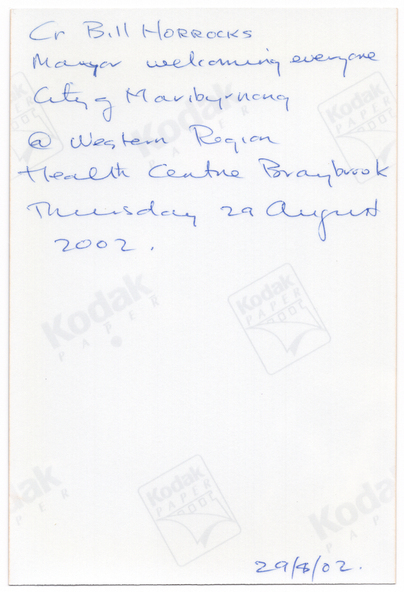 Cr Bill HORROCKS
Mayor welcoming everyone
City of Maribyrnong
@ Western Region
Health Centre Braybrook
Thursday 29 August
2002.
Kodak
PAPER
Kodak
PAPER
Kodak
PAPER
Kodak
PAPER
Kodak
PAPER
Kodak
PAPER
Kodak
29/8/02.